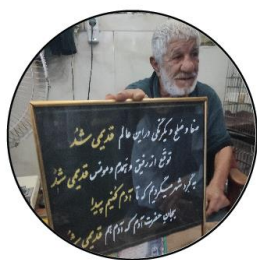 صفا و صلح و یکرنگی در این عالم قدیمی شد
توقع از رفیق و همدم و مونس قدیمی شد
به گرد شهر میگردم که تا آدم کنم پیدا
بجان حضرت آدم که آدم هم قدیمی شد